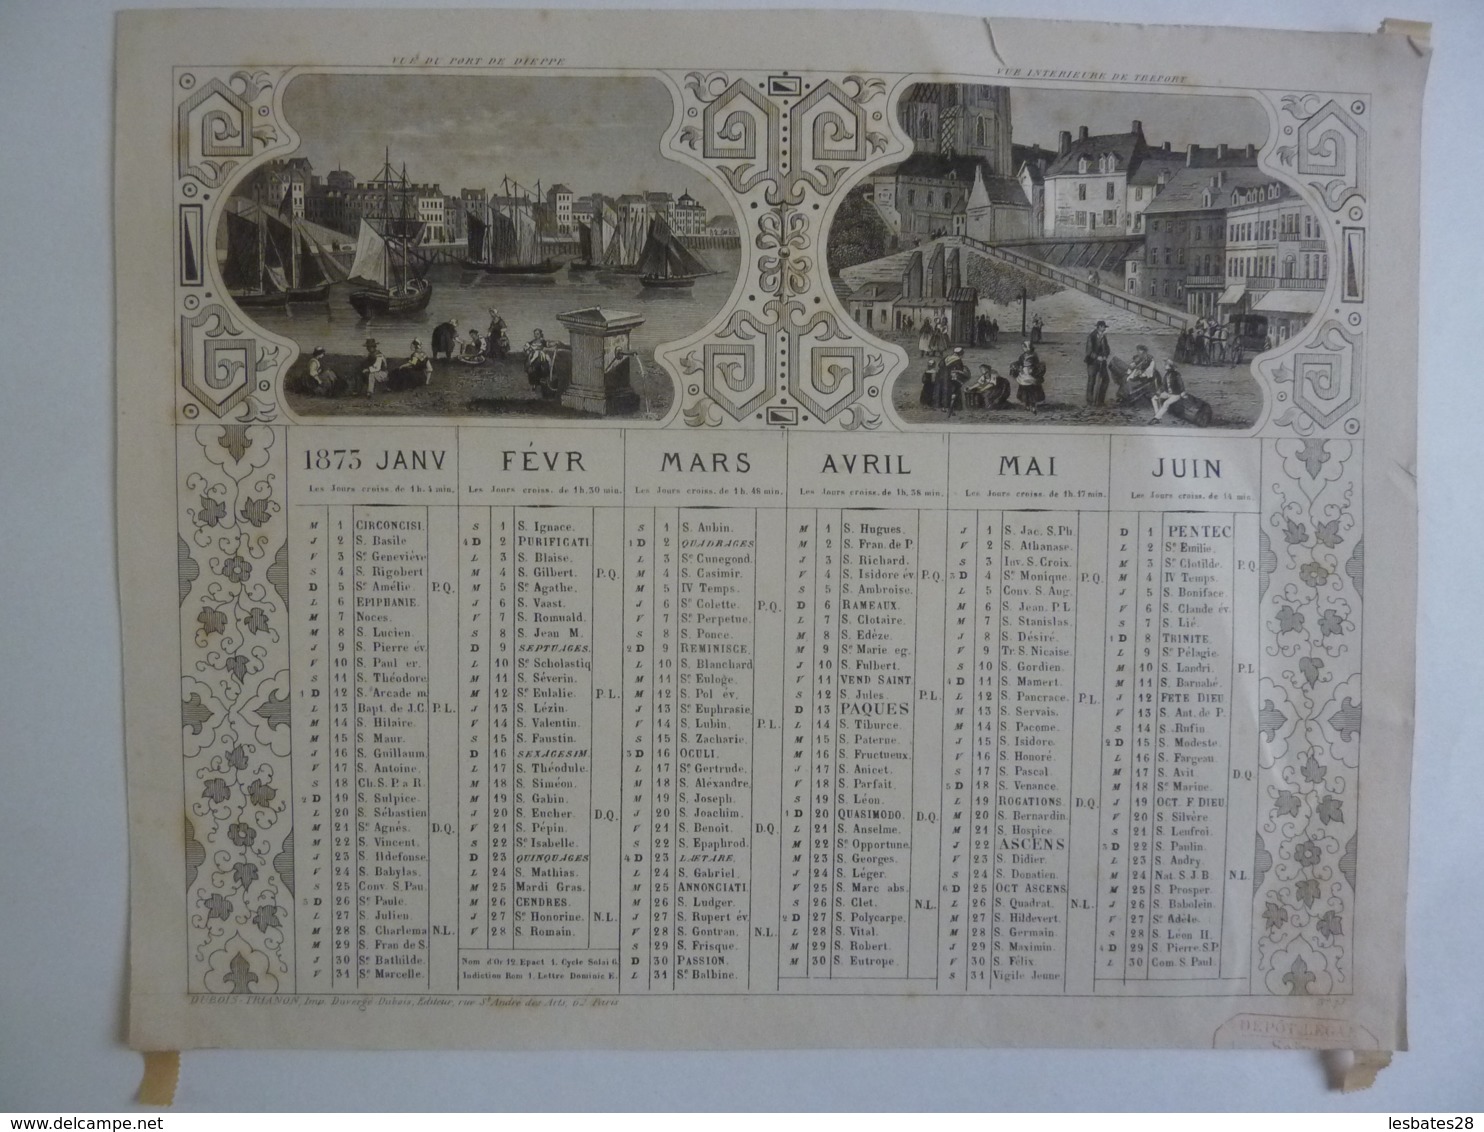 VUE DU PORT DE DIEPPE
VUE INTERIEURE DE TREPORT
1873 JANV
Les Jours croiss. de 1 h. 4 min.
M 1 CIRCONCISI.
J 2 S. Basile
V 3 Se Geneviéve
S 4 S. Rigobert
D 5 Se Amélie. P.Q.
L 6 EPIPHANIE.
M 7 Noces.
M 8 S. Lucien.
J 9 S. Pierre év.
V 10 S. Paul er.
S 11 S. Théodore
1 D 12 S. Arcade m
L 13 Bapt. de J.C. P.L.
M 14 S. Hilaire.
M 15 S. Maur.
J 16 S. Guillaum.
V 17 S. Antoine.
S 18 Ch. S. P. a R.
2 D 19 S. Sulpice.
L 20 S. Sébastien
M 21 Se Agnés. D.Q.
M 22 S. Vincent.
J 23 S. Ildefonse.
V 24 S. Babylas.
S 25 Conv. S. Pau.
3 D 26 Se Paule.
L 27 S. Julien
M 28 S. Charlema N.L.
M 29 S. Fran de S.
J 30 Se Bathilde.
V 31 Se Marcelle.
FÉVR
Les Jours croiss. de 1 h. 30 min.
S 1 S. Ignace.
4 D 2 PURIFICATI.
L 3 S. Blaise.
M 4 S. Gilbert. P.Q.
M 5 Se Agathe.
J 6 S. Vaast.
V 7 S. Romuald.
S 8 S. Jean M.
D 9 SEPTUAGES.
L 10 Se Scholastiq
M 11 S. Séverin.
M 12 Se Eulalie. P.L.
J 13 S. Lézin.
V 14 S. Valentin.
S 15 S. Faustin.
D 16 SEXAGESIM.
L 17 S. Théodule.
M 18 S. Siméon.
M 19 S. Gabin.
J 20 S. Eucher. D.Q.
V 21 S. Pépin.
S 22 Se Isabelle.
D 23 QUINQUAGES
L 24 S. Mathias.
M 25 Mardi Gras.
M 26 CENDRES.
J 27 Se Honorine. N.L.
V 28 S. Romain.
Nom d'Or 12. Epact 1. Cycle Solai 6.
Indiction Rom 1. Lettre Dominic E.
MARS
Les Jours croiss. de 1 h. 48 min.
S 1 S. Aubin.
1 D 2 QUADRAGES
L 3 Se Cunegond.
M 4 S. Casimir.
M 5 IV Temps.
J 6 Se Colette. P.Q.
V 7 Se Perpetue.
S 8 S. Ponce.
2 D 9 REMINISCE.
L 10 S. Blanchard
M 11 Se Euloge.
M 12 S. Pol év.
J 13 Se Euphrasie
V 14 S. Lubin. P.L.
S 15 S. Zacharie.
3 D 16 OCULI.
L 17 Se Gertrude.
M 18 S. Alexandre
M 19 S. Joseph.
J 20 S. Joachim.
V 21 S. Benoit. D.Q.
S 22 S. Epaphrod.
4 D 23 LÆTARE.
L 24 S. Gabriel.
M 25 ANNONCIATI.
M 26 S. Ludger.
J 27 S. Rupert év.
V 28 S. Gontran. N.L.
S 29 S. Frisque.
D 30 PASSION.
L 31 Se Balbine.
AVRIL
Les Jours croiss. de 1 h. 38 min.
M 1 S. Hugues.
M 2 S. Fran. de P.
J 3 S. Richard.
V 4 S. Isidore év. P.Q.
S 5 S. Ambroise.
D 6 RAMEAUX.
L 7 S. Clotaire.
M 8 S. Edéze.
M 9 Se Marie eg.
J 10 S. Fulbert.
V 11 VEND SAINT.
S 12 S. Jules. P.L.
D 13 PAQUES
L 14 S. Tiburce.
M 15 S. Paterne.
M 16 S. Fructueux.
J 17 S. Anicet.
V 18 S. Parfait.
S 19 S. Léon.
1 D 20 QUASIMODO. D.Q.
L 21 S. Anselme.
M 22 Se Opportune.
M 23 S. Georges.
J 24 S. Léger.
V 25 S. Marc abs.
S 26 S. Clet. N.L.
2 D 27 S. Polycarpe.
L 28 S. Vital.
M 29 S. Robert.
M 30 S. Eutrope.
MAI
Les Jours croiss. de 1 h. 17 min.
J 1 S. Jac. S. Ph.
V 2 S. Athanase.
S 3 Inv. S. Croix.
3 D 4 Se Monique. P.Q.
L 5 Conv. S. Aug.
M 6 S. Jean. P. L
M 7 S. Stanislas.
J 8 S. Désiré.
V 9 Tr. S. Nicaise.
S 10 S. Gordien.
4 D 11 S. Mamert.
L 12 S. Pancrace. P.L.
M 13 S. Servais.
M 14 S. Pacome.
J 15 S. Isidore.
V 16 S. Honoré.
S 17 S. Pascal.
5 D 18 S. Venance.
L 19 ROGATIONS. D.Q.
M 20 S. Bernardin.
M 21 S. Hospice
J 22 ASCENS
V 23 S. Didier.
S 24 S. Donatien.
6 D 25 OCT ASCENS.
L 26 S. Quadrat. N.L.
M 27 S. Hildevert.
M 28 S. Germain.
J 29 S. Maximin.
V 30 S. Félix.
S 31 Vigile Jeune.
JUIN
Les Jours croiss. de 14 min.
D 1 PENTEC
L 2 Se Emilie.
M 3 Se Clotilde. P.Q.
M 4 IV Temps.
J 5 S. Boniface.
V 6 S. Claude év.
S 7 S. Lié.
1 D 8 TRINITE.
L 9 Se Pélagie.
M 10 S. Landri. P.L
M 11 S. Barnabé.
J 12 FETE DIEU
V 13 S. Ant. de P.
S 14 S. Rufin.
2 D 15 S. Modeste.
L 16 S. Fargeau
M 17 S. Avit D.Q.
M 18 Se Marine.
J 19 OCT. F DIEU.
V 20 S. Silvére
S 21 S. Leufroi.
3 D 22 S. Paulin.
L 23 S. Andry.
M 24 Nat. S. J. B. N.L.
M 25 S. Prosper.
J 26 S. Babolein.
V 27 Se Adele.
S 28 S. Léon II.
4 D 29 S. Pierre. S.P.
L 30 Com. S. Paul.
DUBOIS-TRIANON, Imp. Duvergé Dubois, Editeur, rue St André des Arts, 62. Paris
DÉPÔT LÉGAL
lesbates28